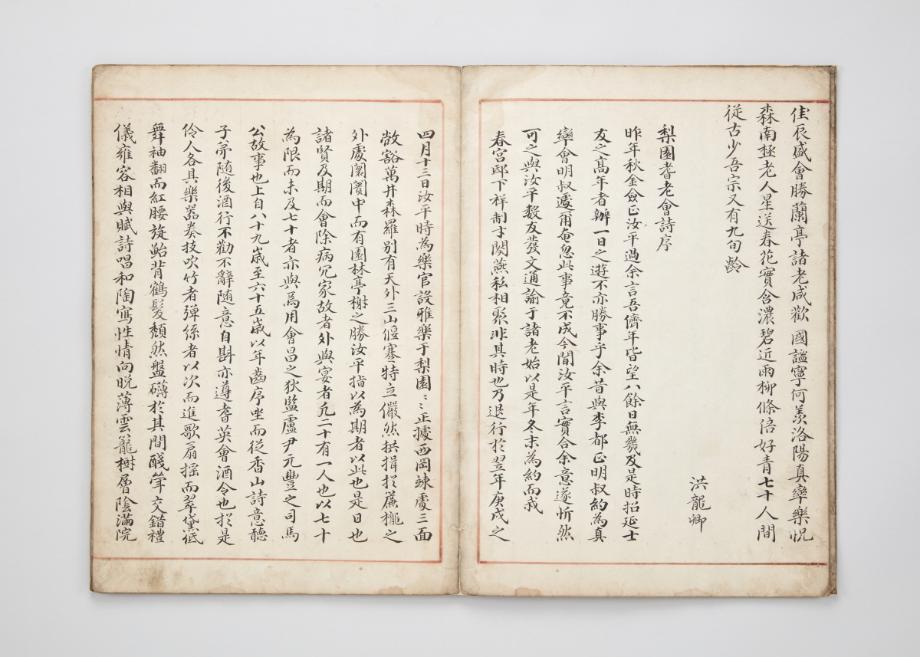 佳辰盛會勝蘭亭諸老咸歡國謐寧何羨洛陽真率樂怳
森南極老人星送春花實含濃碧近雨柳條倍好青七十人間
從古少吾宗又有九旬齡
洪龍卿
梨園耆老會詩序
昨年秋金僉正汝平過余言吾儕年皆望八餘日無幾及是時招延士
友之高年者辦一日之遊不亦勝事乎余昔與李都正明叔約為真
率會明叔遽爾奄忽此事竟不成今聞汝平言實合余意遂忻然
可之與汝平數友發文通諭于諸老始以是年冬末為約而我
春宮邸下祥制才闋燕私相聚非其時也乃退行於翌年庚戌之
四月十三日汝平時為樂官設雅樂于梨園〻正據西岡竦處三面
敞豁萬井森羅別有天外三山偃蹇特立儼然拱揖於簾櫳之
外處闤闠中而有園林亭榭之勝汝平指以為期者以此也是日也
諸賢及期而會除病冗家故者外與宴者凡二十有一人也以七十
為限而未及七十者亦與焉用會昌之狄監盧尹元豐之司馬
公故事也上自八十九歲至六十五歲以年齒序坐而從香山詩意聽
子弟隨後酒行不勸不辭隨意自斟亦遵耆英會酒令也於是
伶人各具樂器奏技吹竹者彈絲者以次而進歌扇搖而翠黛低
舞袖翻而紅腰旋鮐背鶴髮頹然盤礴於其間醆斝交錯禮
儀雍容相與賦詩唱和陶寫性情向晚薄雲籠樹層陰滿院